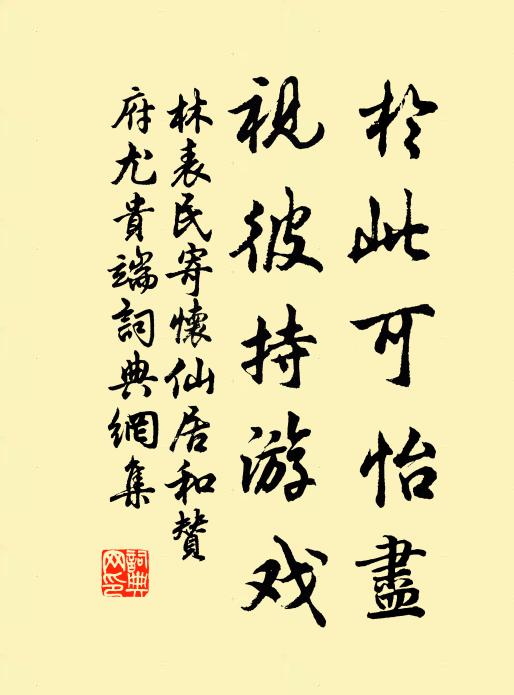 於此可怡盡
視彼持游戏
林表民寄懷仙居和贊
府尤貴端詞典網集
詞典
网印